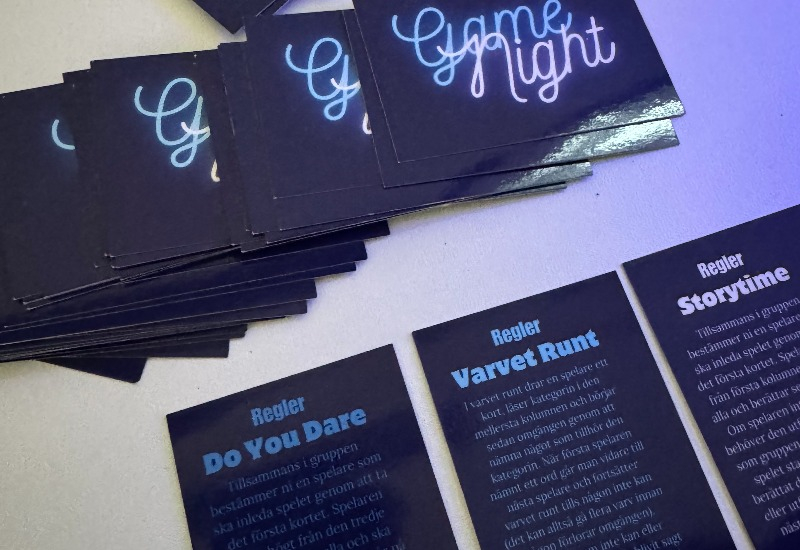 Game
Night
Regler
Do You Dare
Tillsammans i gruppen
bestämmer ni en spelare som
ska inleda spelet genom att ta
det första kortet. Spelaren
från den tredje
alla och ska
Regler
Varvet Runt
I varvet runt drar en spelare ett
kort, läser kategorin i den
mellersta kolumnen och börjar
sedan omgången genom att
nämna något som tillhör den
kategorin. När första spelaren
nämnt ett ord går man vidare till
nästa spelare och fortsätter
varvet runt tills någon inte kan
(det kan alltså gå flera varv innan
förlorar omgången).
inte kan eller
sagt
Regler
Storytime
Tillsammans i gruppen
bestämmer ni en spelare
ska inleda spelet genom
det första kortet.
från första kolumnen
alla och berättar
Om spelaren
behöver den
som gruppen
spelet
berättat